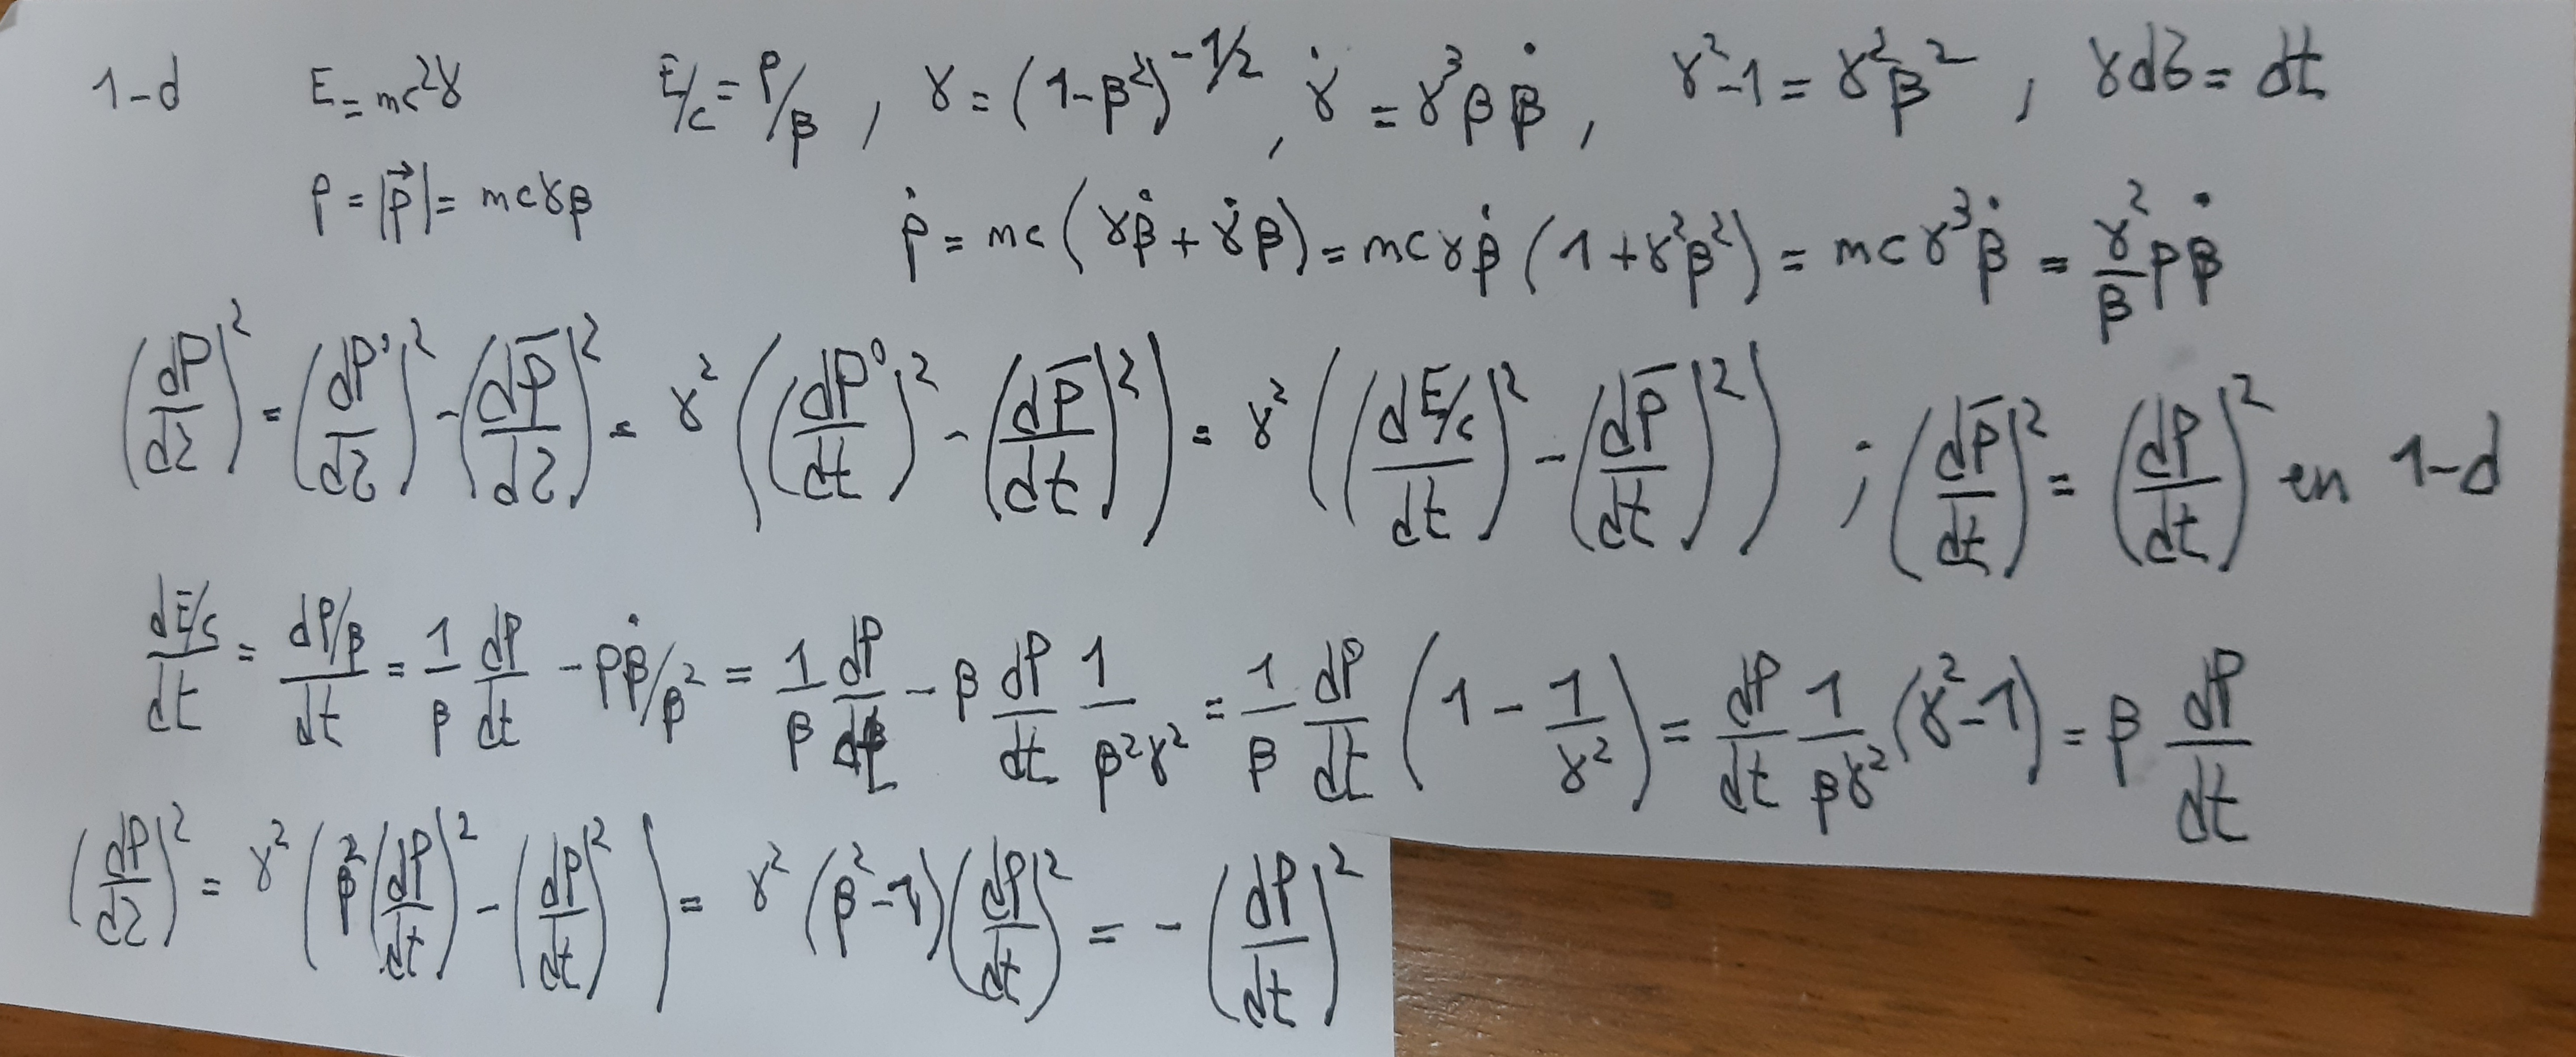 1-d E=mc²γ E/c = P/β , γ = (1-β²)^{-1/2} , γ̇ = γ³ββ̇ , γ²-1 = γ²β² , γdτ = dt
p = |p⃗| = mcγβ ṗ = mc(γβ̇ + γ̇β) = mcγβ̇(1+γ²β²) = mcγ³β̇ = γ²/β pβ̇
(dP/dτ)² = (dP⁰/dτ)² - (dp̄/dτ)² = γ²((dP⁰/dt)² - (dp̄/dt)²) = γ²((dE/c/dt)² - (dp̄/dt)²) ; (dp̄/dt)² = (dp/dt)² en 1-d
dE/c/dt = dP/β/dt = 1/β dp/dt - pβ̇/β² = 1/β dp/dt - β dp/dt 1/β²γ² = 1/β dp/dt (1 - 1/γ²) = dp/dt 1/βγ² (γ²-1) = β dp/dt
(dP/dτ)² = γ²(β²(dp/dt)² - (dp/dt)²) = γ²(β²-1)(dp/dt)² = -(dp/dt)²